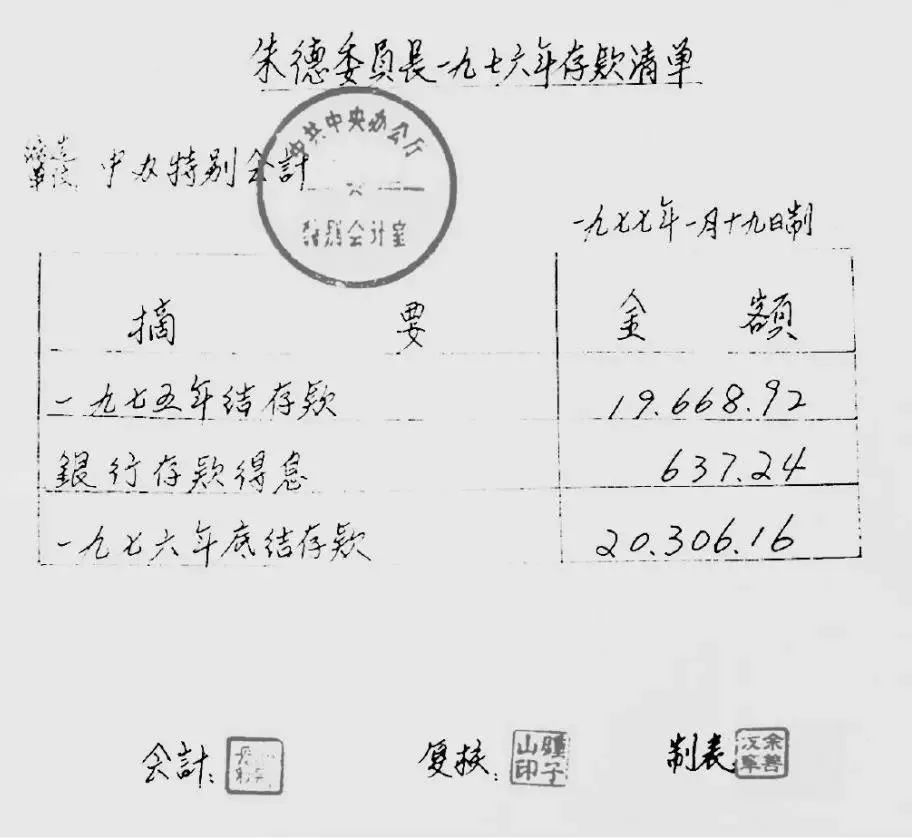 朱德委員長一九七六年存款清单
中办特别会計
中共中央办公厅
特别会计室
一九七七年一月十九日制
摘 要 金 額
一九七五年结存款 19.668.92
銀行存款得息 637.24
一九七六年底结存款 20.306.16
会計: 复核: 鍾子山印 制表